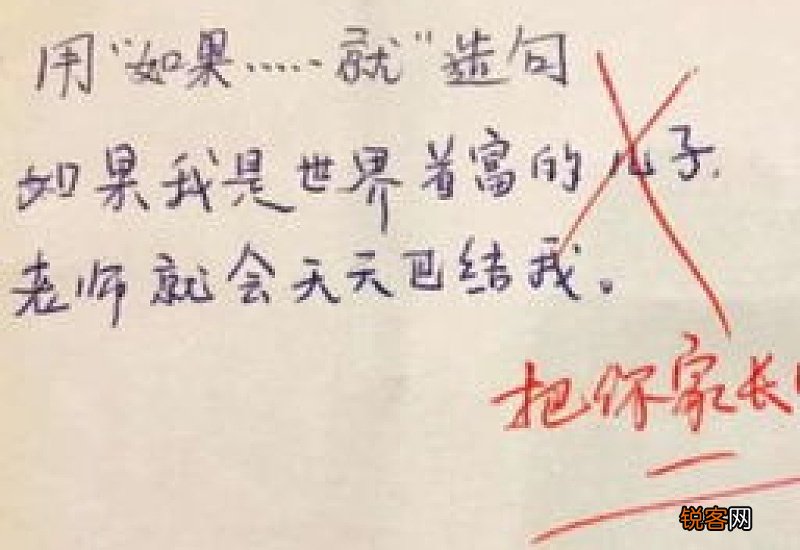 用“如果……就”造句
如果我是世界首富的儿子.
老师就会天天巴结我。
把你家长
锐客网